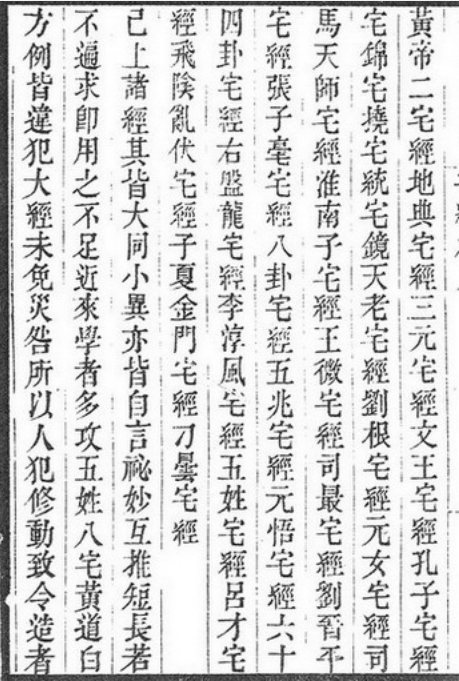 黃帝二宅經地典宅經三元宅經文王宅經孔子宅經
宅錦宅撓宅統宅鏡天老宅經劉根宅經元女宅經司
馬天師宅經淮南子宅經王微宅經司最宅經劉晉平
宅經張子毫宅經八卦宅經五兆宅經元悟宅經六十
四卦宅經右盤龍宅經李淳風宅經五姓宅經呂才宅
經飛陰亂伏宅經子夏金門宅經刁曇宅經
已上諸經其皆大同小異亦皆自言祕妙互推短長若
不遍求即用之不足近來學者多攻五姓八宅黃道白
方例皆違犯大經未免災咎所以人犯修動致令造者